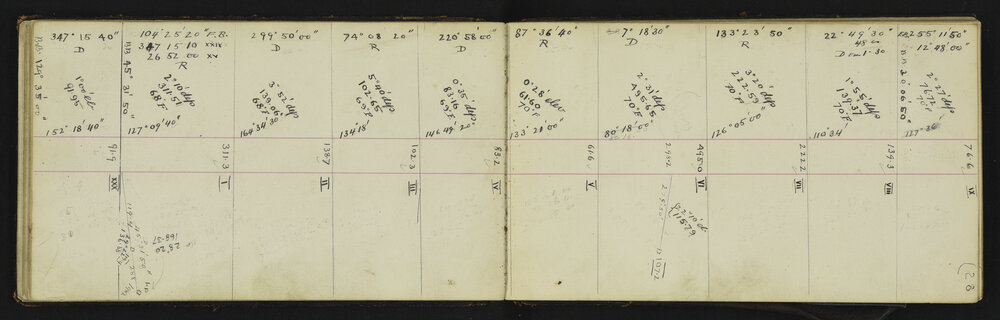 347° 15 40"
D
1° 00' el
91.95
152° 18' 40"
B.B. 124° 35' 00"
104° 25' 20" F.B.
347 15 10 XXIX
26 52 00 XX
R
2° 10' dep
311.51
68°F
127° 09' 40"
B.B. 45° 31' 50"
299° 50' 00"
D
3° 52' dep
139.06
68°F
164° 34' 30"
74° 08' 20"
R
5° 40' dep
102.65
69°F
134° 18'
220° 58' 00"
D
0° 35' dep
83.16
69°F
146° 49' 20"
87° 36' 40"
R
0° 28' elev
61.60
70°F
133° 21' 00"
7° 18' 30"
D
2° 31' dep
495.65
70°F
80° 18' 00"
133° 23' 50"
R
3° 20' dep
222.59
70°F
126° 05' 00"
22° 49' 30"
D
1° 55' dep
139.37
70°F
110° 34'
255° 11' 50"
12° 48' 00"
2° 27' dep
76.72
70°F
127° 36'
91.9
311.3
138.7
102.3
83.2
61.6
495.0
222.2
139.3
76.6
XXX
I
II
III
IV
V
VI
VII
VIII
IX
2° 10' d.
115.79
D 107.2
28° 20
168.37
(28)